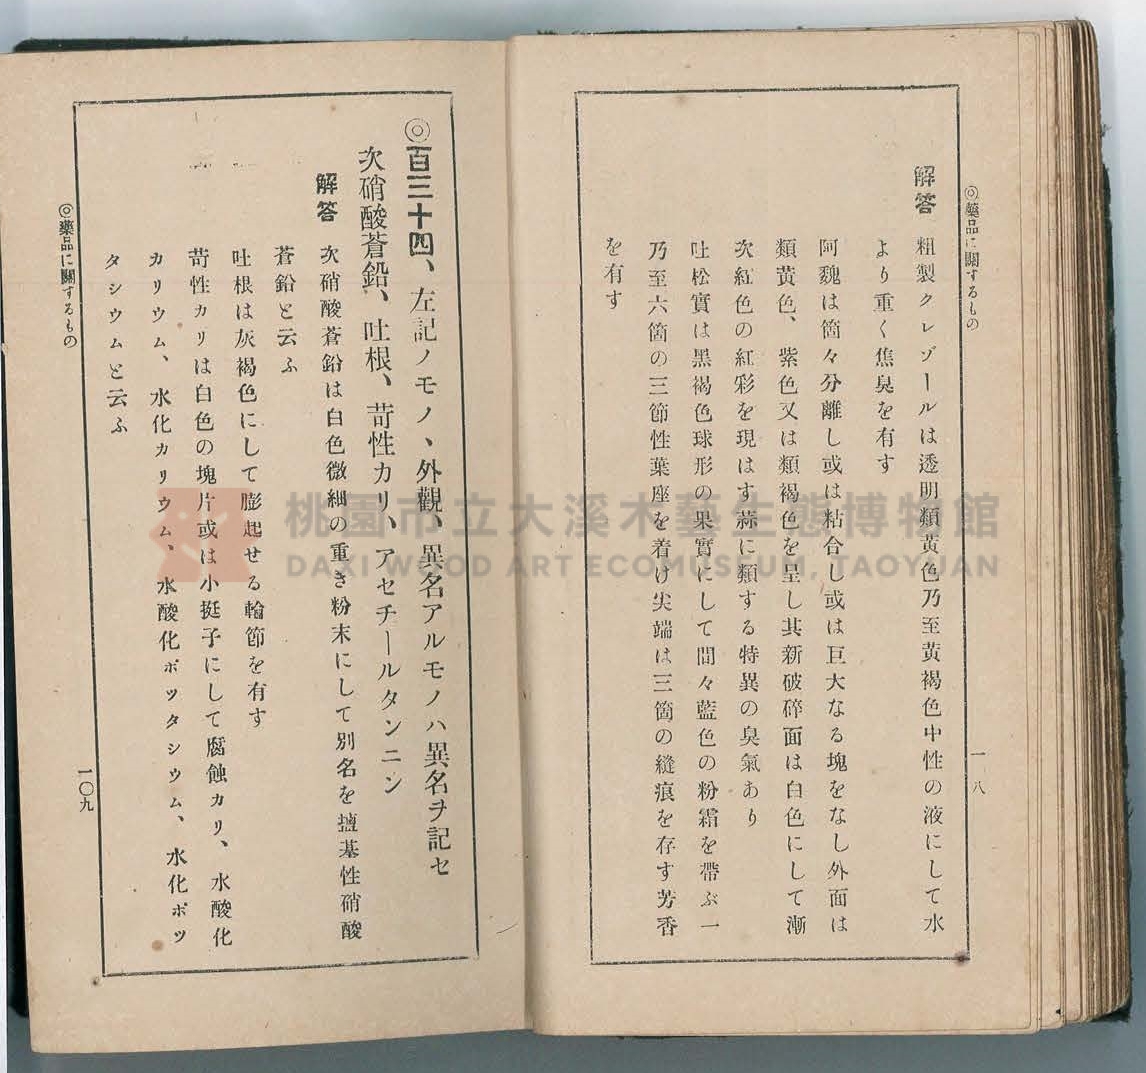 ◎藥品に關するもの
一〇八
解答 粗製クレゾールは透明類黄色乃至黄褐色中性の液にして水
より重く焦臭を有す
阿魏は箇々分離し或は粘合し或は巨大なる塊をなし外面は
類黄色、紫色又は類褐色を呈し其新破碎面は白色にして漸
次紅色の紅彩を現はす蒜に類する特異の臭氣あり
吐松實は黑褐色球形の果實にして間々藍色の粉霜を帶ぶ一
乃至六箇の三節性葉座を着け尖端は三箇の縫痕を存す芳香
を有す
◎百三十四、左記ノモノヽ外觀、異名アルモノハ異名ヲ記セ
次硝酸蒼鉛、吐根、苛性カリ、アセチールタンニン
解答 次硝酸蒼鉛は白色微細の重き粉末にして別名を鹽基性硝酸
蒼鉛と云ふ
吐根は灰褐色にして膨起せる輪節を有す
苛性カリは白色の塊片或は小挺子にして腐蝕カリ、水酸化
カリウム、水化カリウム、水酸化ポツタシウム、水化ポツ
タシウムと云ふ
◎藥品に關するもの
一〇九
桃園市立大溪木藝生態博物館
DAXI WOOD ART ECOMUSEUM, TAOYUAN